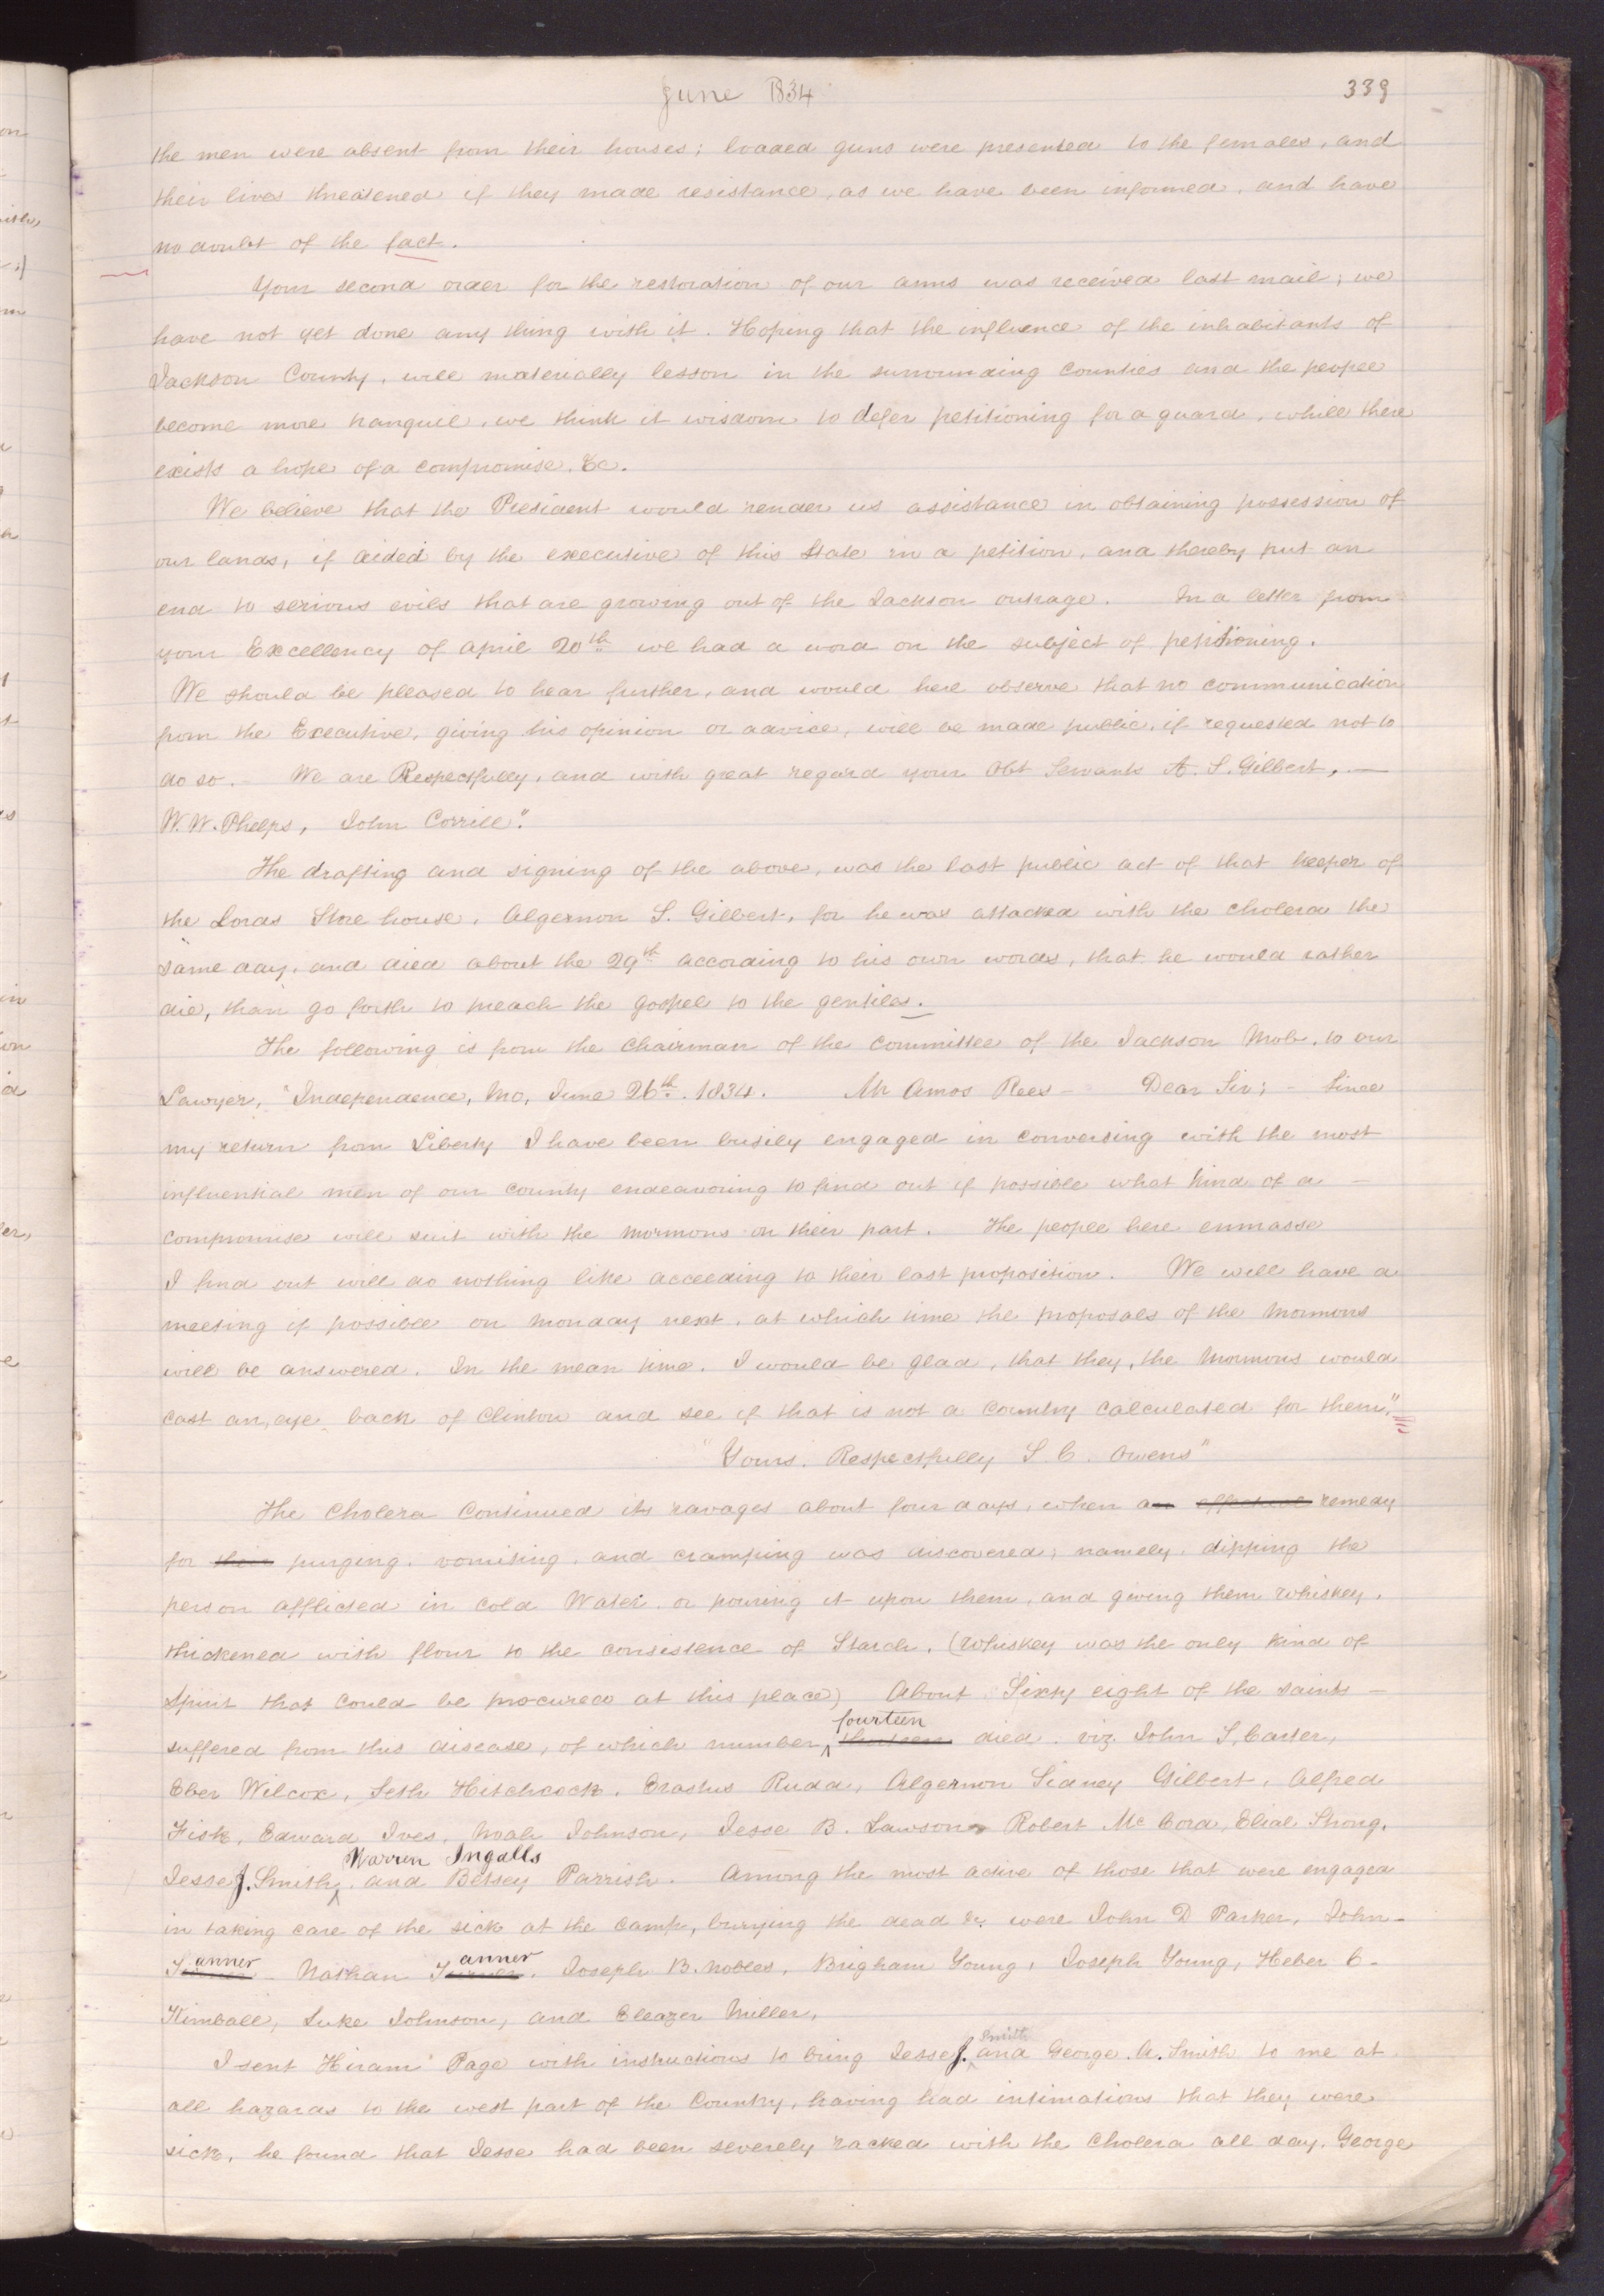 June 1834
339
the men were absent from their houses; loaded guns were presented to the females, and
their lives threatened if they made resistance, as we have been informed, and have
no doubt of the fact.
Your second order for the restoration of our arms was received last mail; we
have not yet done any thing with it. Hoping that the influence of the inhabitants of
Jackson County, will materially lesson in the surrounding counties and the people
become more tranquil, we think it wisdom to defer petitioning for a guard, while there
exists a hope of a compromise, &c.
We believe that the President would render us assistance in obtaining possession of
our lands, if aided by the executive of this State in a petition, and thereby put an
end to serious evils that are growing out of the Jackson outrage. In a letter from
your Excellency of April 20th we had a word on the subject of petitioning.
We should be pleased to hear further, and would here observe that no communication
from the Executive, giving his opinion or advice, will be made public, if requested not to
do so. – We are Respectfully, and with great regard your Obt Servants A. S. Gilbert, —
W. W. Phelps, John Corrill."
The drafting and signing of the above, was the last public act of that keeper of
the Lords Store house, Algernon S. Gilbert, for he was attacked with the cholera the
same day, and died about the 29th according to his own words, that he would rather
die, than go forth to preach the gospel to the gentiles.
The following is from the Chairman of the committee of the Jackson Mob, to our
Lawyer, "Independence, Mo, June 26th. 1834. Mr Amos Rees – Dear Sir; – Since
my return from Liberty I have been busily engaged in conversing with the most
influential men of our county endeavoring to find out if possible what kind of a –
compromise will suit with the mormons on their part. The people here enmasse
I find out will do nothing like acceeding to their last proposition. We will have a
meeting if possible on monday next, at which time the proposals of the Mormons
will be answered. In the mean time, I would be glad, that they, the Mormons would
cast an, eye back of Clinton and see if that is not a country calculated for them,"
"Yours. Respectfully S. C. Owens"
The Cholera Continued its ravages about four days, when an effectual remedy
for their purging, vomiting, and cramping was discovered; namely, dipping the
person afflicted in cold Water, or pouring it upon them, and giving them whiskey,
thickened with flour to the consistence of Starch. (Whiskey was the only kind of
Spirit that could be procured at this place) About Sixty eight of the saints –
fourteen
suffered from this disease, of which number ^ thirteen died. viz John S, Carter,
Eber Wilcox, Seth Hitchcock, Erastus Rudd, Algernon Sidney Gilbert, Alfred
Fisk, Edward Ives, Noah Johnson, Jesse B. Lawson, Robert McCord, Elial Strong,
Warren Ingalls
Jesse J. Smith, ^ and Betsey Parrish. Among the most active of those that were engaged
in taking care of the sick at the camp, burying the dead &c were John D Parker, John –
Tanner Nathan Tanner, Joseph B. Nobles, Brigham Young, Joseph Young, Heber C –
Kimball, Luke Johnson, and Eleazer Miller,
Smith
I sent Hiram Page with instructions to bring Jesse J. ^ and George. A. Smith to me at
all hazards to the west part of the Country, having had intimations that they were
sick, he found that Jesse had been severely racked with the Cholera all day, George